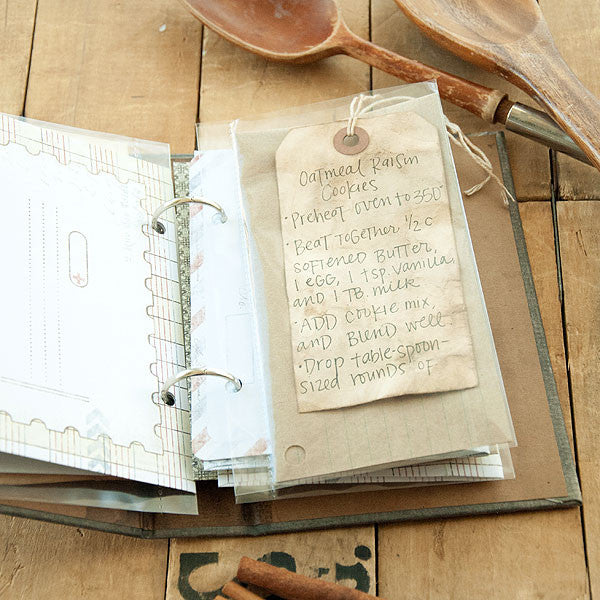 Oatmeal Raisin
Cookies
• Preheat oven to 350°
• Beat together ½ c
softened butter,
1 egg, 1 tsp. vanilla,
and 1 TB. milk
• Add cookie mix,
and blend well.
• Drop table-spoon-
sized rounds of